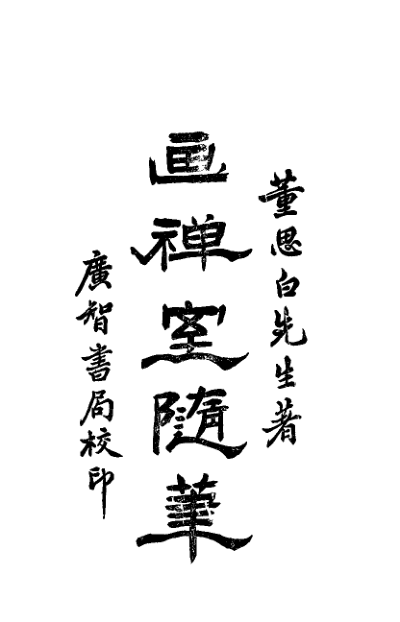 董思白先生著
画禅室隨筆
廣智書局校印